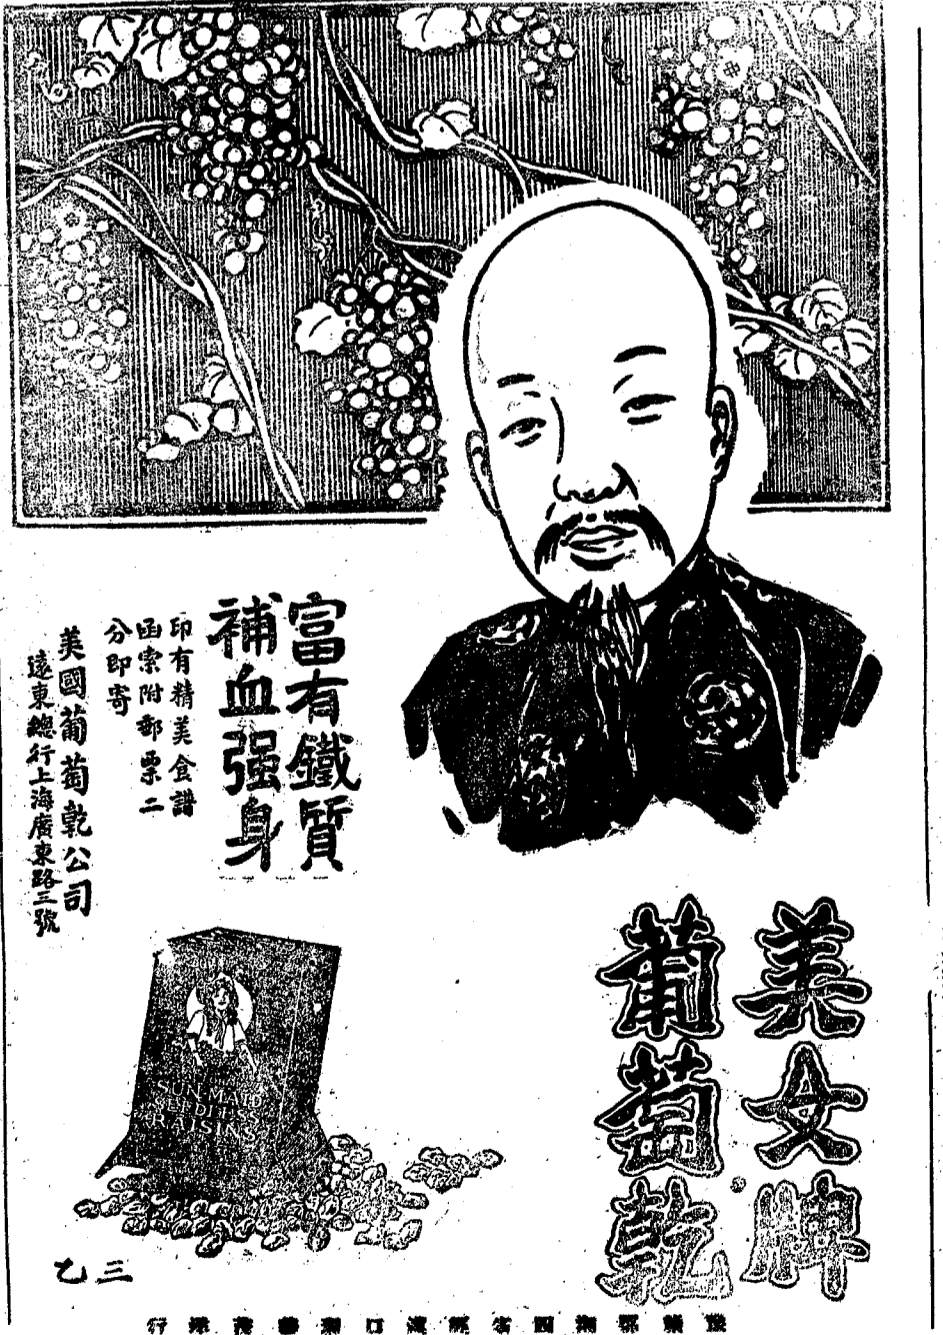 美女牌
葡萄乾
富有鐵質
補血强身
印有精美食譜
函索附郵票二
分即寄
美國葡萄乾公司
遠東總行上海廣東路三號
SUN-MAID
SEEDLESS
RAISINS
三乙
鄂湘四省